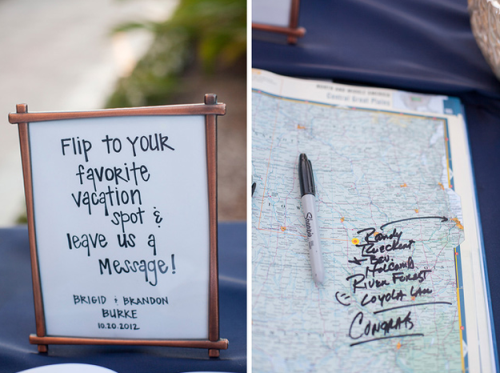 Flip to your
favorite
vacation
spot &
leave us a
Message!
BRIGID + BRANDON
BURKE
10.20.2012
Central Great Plains
Sharpie
Randy
Rueckert
Bev.
Holcomb
River Forest
Loyola Law
Congrats